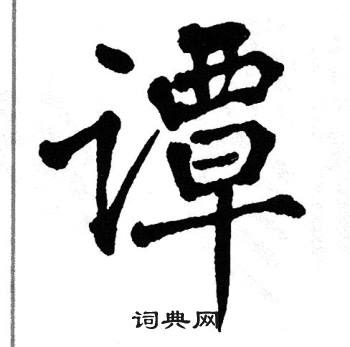 谭
词典网